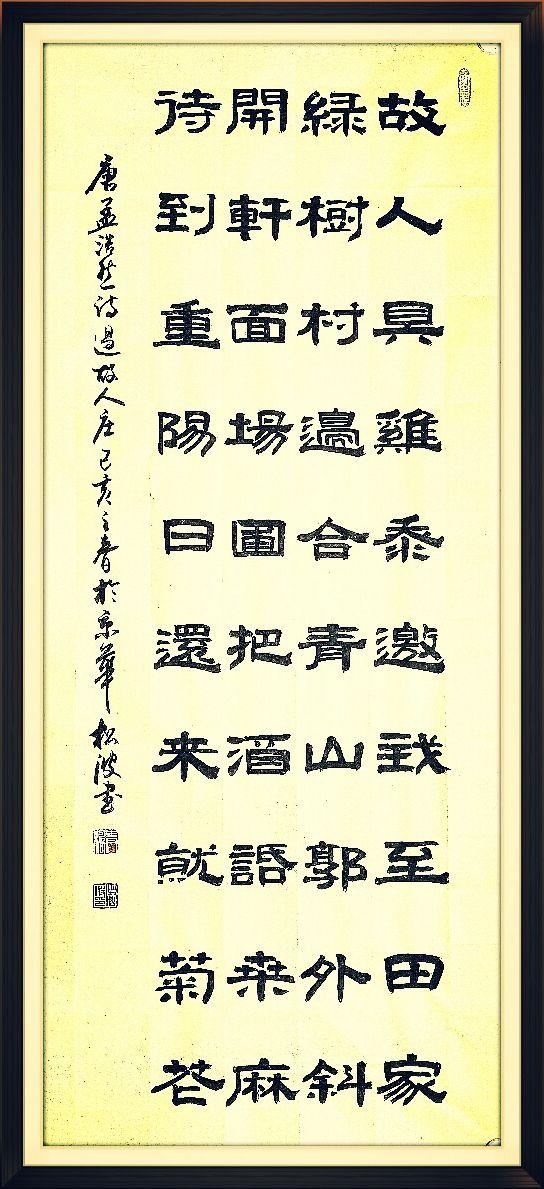 故人具雞黍邀我至田家
緑樹村邊合青山郭外斜
開軒面場圃把酒話桒麻
待到重陽日還来就菊花
唐孟浩然诗過故人庄己亥之春於京華松波书